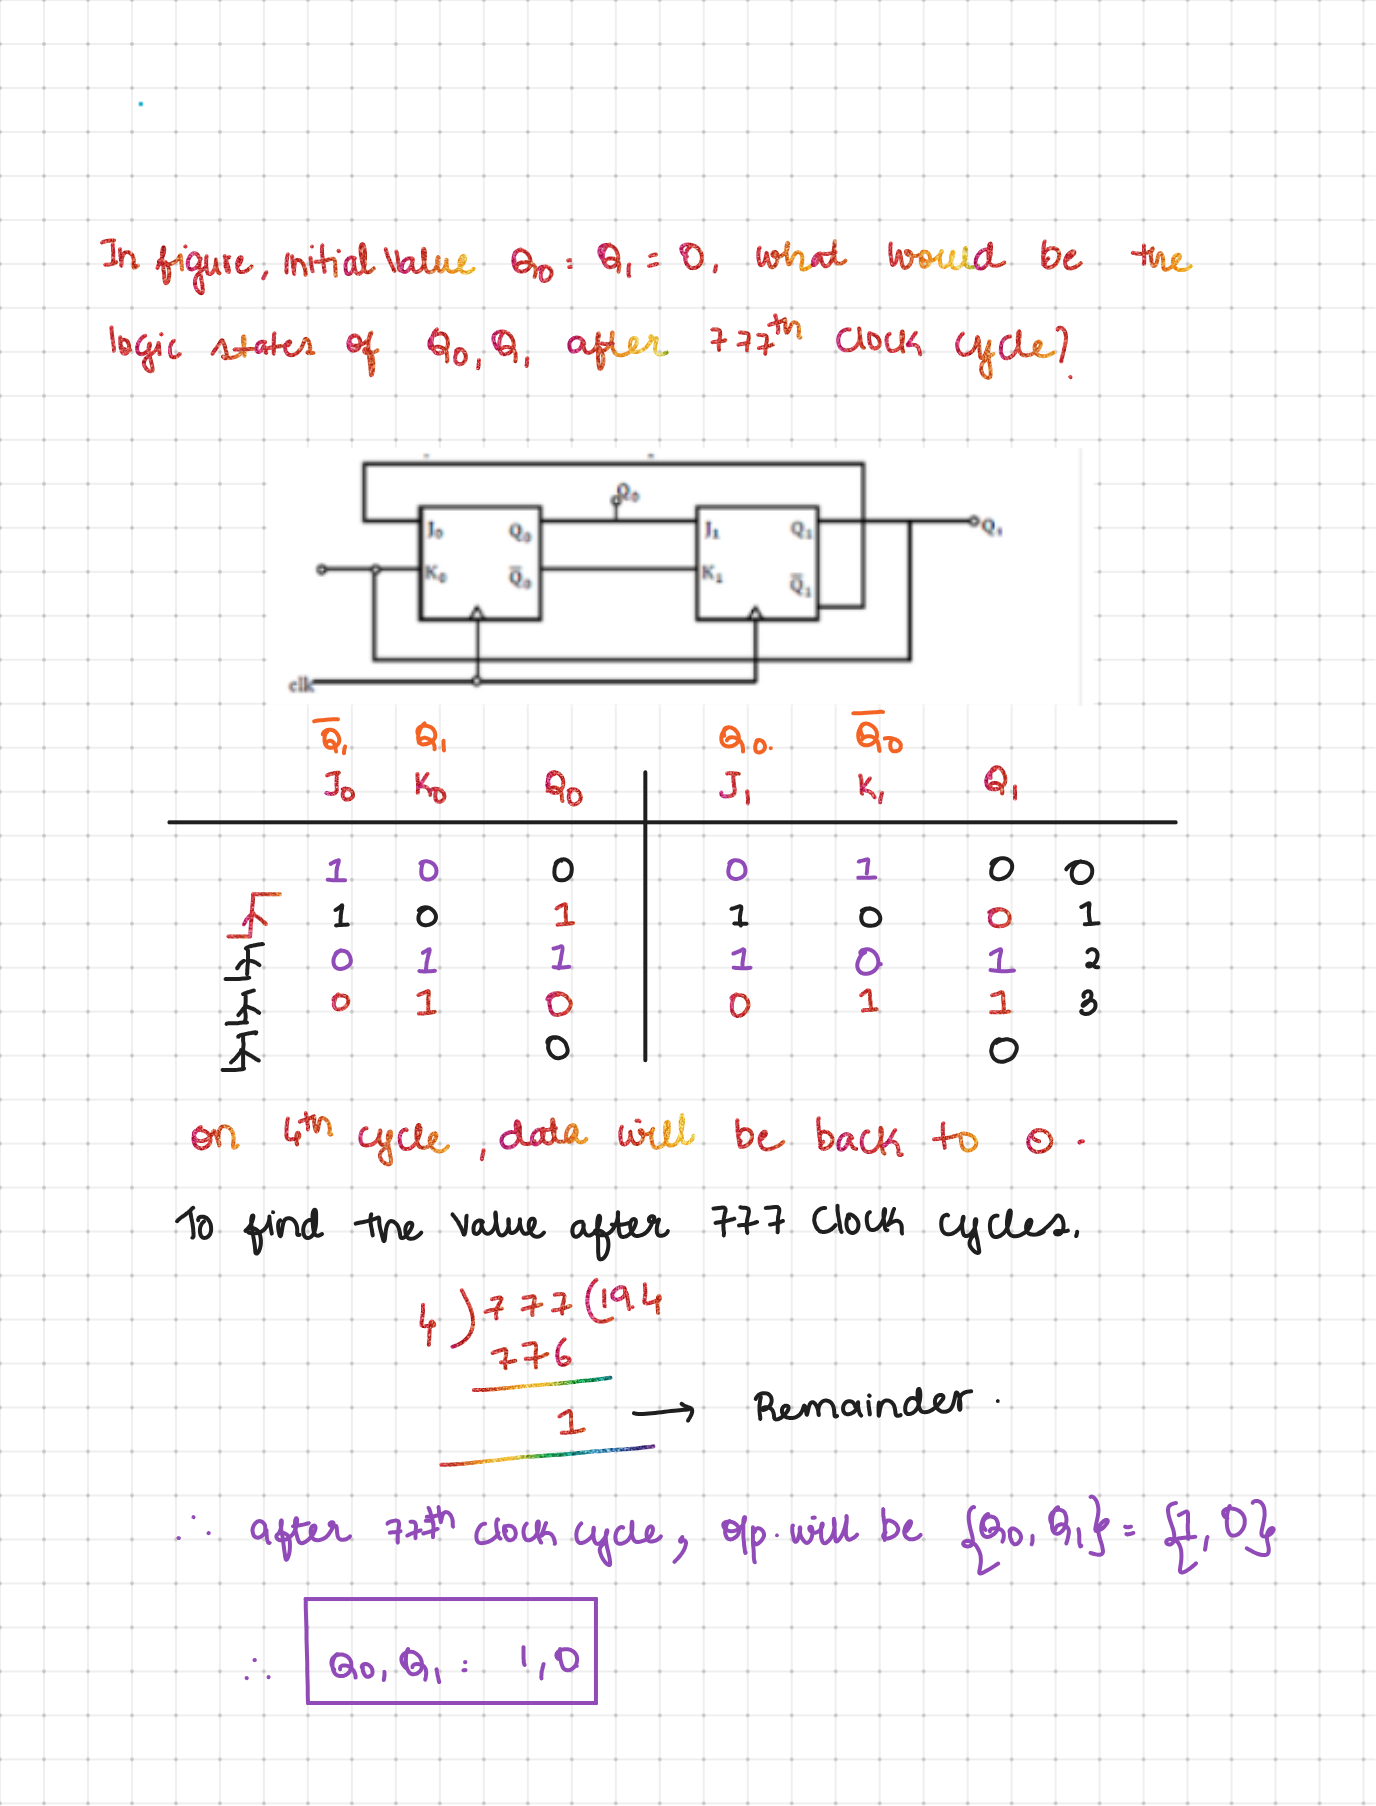 In figure, initial value Q₀ = Q₁ = 0, what would be the
logic states of Q₀, Q₁ after 777ᵗʰ clock cycle?
Q₀
J₀ Q₀ J₁ Q₁ Q₁
K₀ Q̅₀ K₁ Q̅₁
clk
Q̅₁ Q₁ Q₀. Q̅₀
J₀ K₀ Q₀ J₁ K₁ Q₁
1 0 0 0 1 0 0
1 0 1 1 0 0 1
0 1 1 1 0 1 2
0 1 0 0 1 1 3
0 0
on 4ᵗʰ cycle, data will be back to 0.
To find the value after 777 clock cycles.
4 ) 777 ( 194
776
1 → Remainder.
∴ after 777ᵗʰ clock cycle, o/p. will be {Q₀, Q₁} = {1, 0}
∴ Q₀, Q₁ : 1, 0